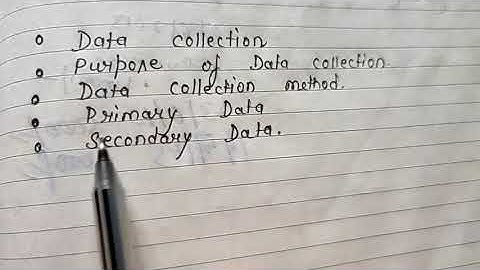 • Data collection
• Purpose of Data collection.
• Data collection method.
• Primary Data
• Secondary Data.